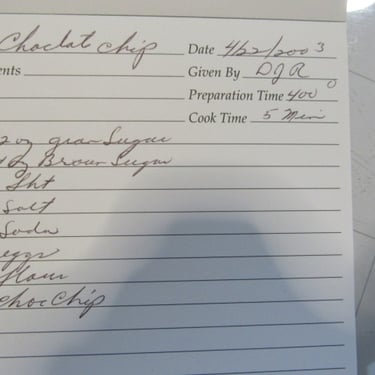 Choclat chip Date 4/22/2003
ents Given By DJR
Preparation Time 400°
Cook Time 5 Min
2 oz gran Sugar
oz Brown Sugar
Sht
Salt
Soda
eggs
flour
choc Chip